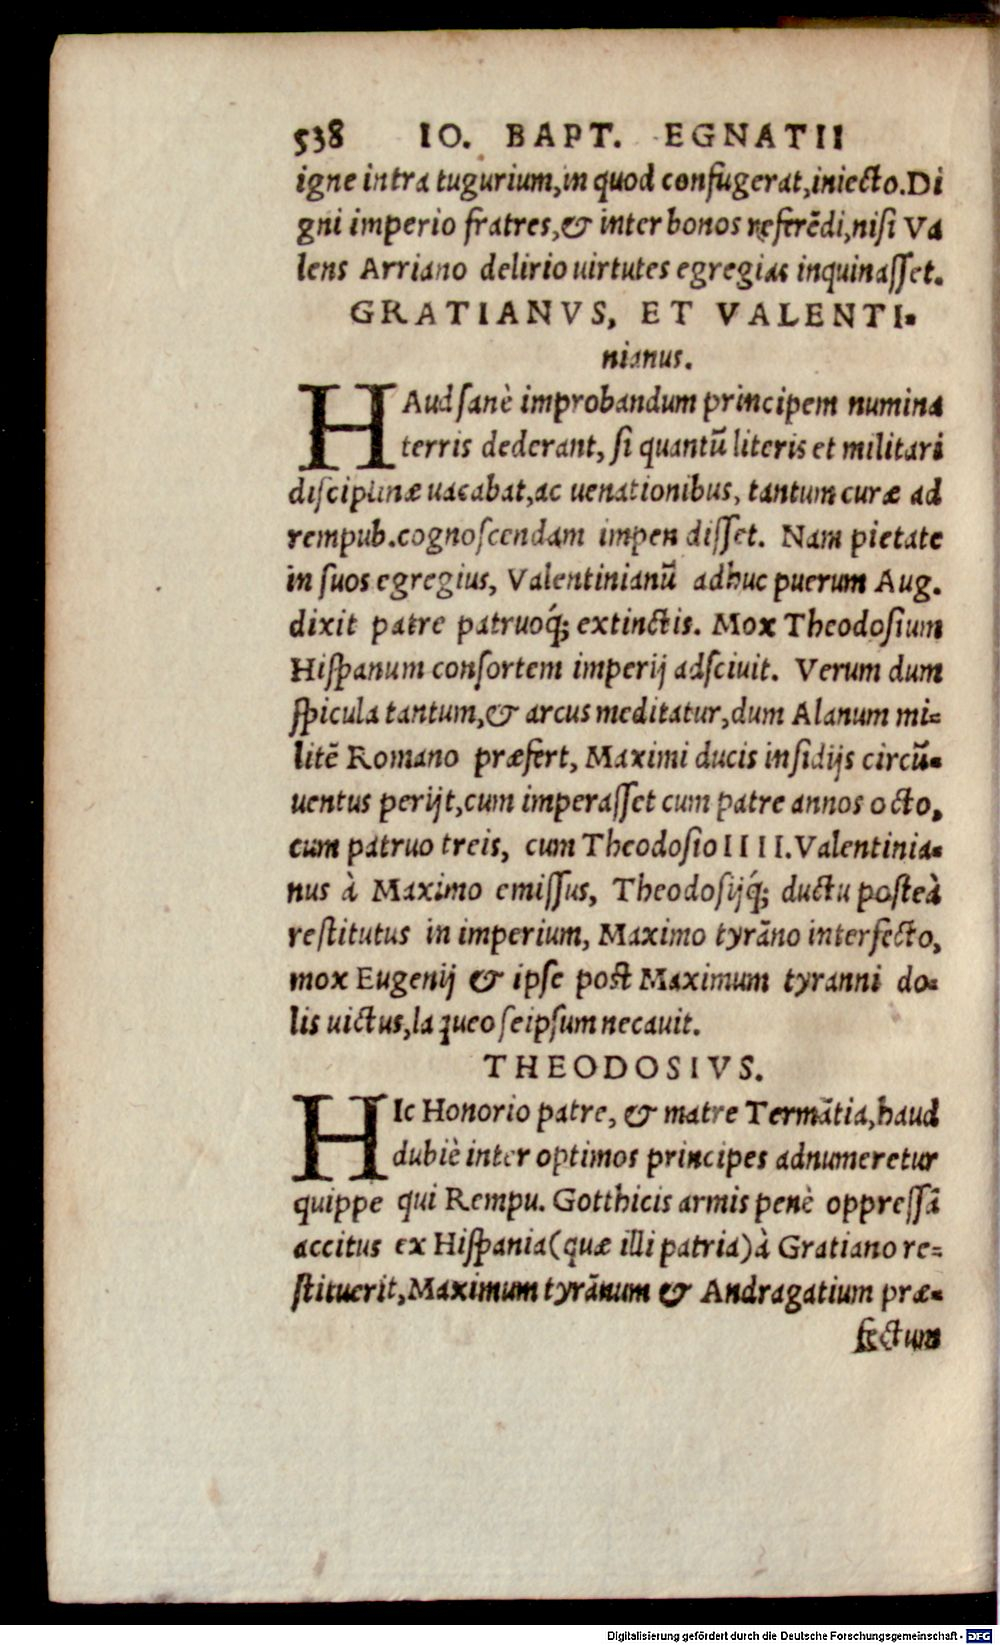 538 IO. BAPT. EGNATII
igne intra tugurium,in quod confugerat,iniecto.Di
gni imperio fratres,& inter bonos referẽdi,nisi Va
lens Arriano delirio uirtutes egregias inquinasset.
GRATIANVS, ET VALENTI-
nianus.
HAud sanè improbandum principem numina
terris dederant, si quantũ literis et militari
disciplinæ uacabat,ac uenationibus, tantum curæ ad
rempub.cognoscendam impendisset. Nam pietate
in suos egregius, Valentinianũ adhuc puerum Aug.
dixit patre patruoq́; extinctis. Mox Theodosium
Hispanum consortem imperij adsciuit. Verum dum
spicula tantum,& arcus meditatur,dum Alanum mi-
litẽ Romano præfert, Maximi ducis insidijs circũ-
uentus perijt,cum imperasset cum patre annos octo,
cum patruo treis, cum Theodosio IIII.Valentinia-
nus à Maximo emissus, Theodosijq́; ductu posteà
restitutus in imperium, Maximo tyrãno interfecto,
mox Eugenij & ipse post Maximum tyranni do-
lis uictus,laqueo seipsum necauit.
THEODOSIVS.
HIc Honorio patre, & matre Termãtia,haud
dubiè inter optimos principes adnumeretur
quippe qui Rempu. Gotthicis armis penè oppressã
accitus ex Hispania(quæ illi patria)à Gratiano re-
stituerit,Maximum tyrãnum & Andragatium præ-
fectum
Digitalisierung gefördert durch die Deutsche Forschungsgemeinschaft - DFG